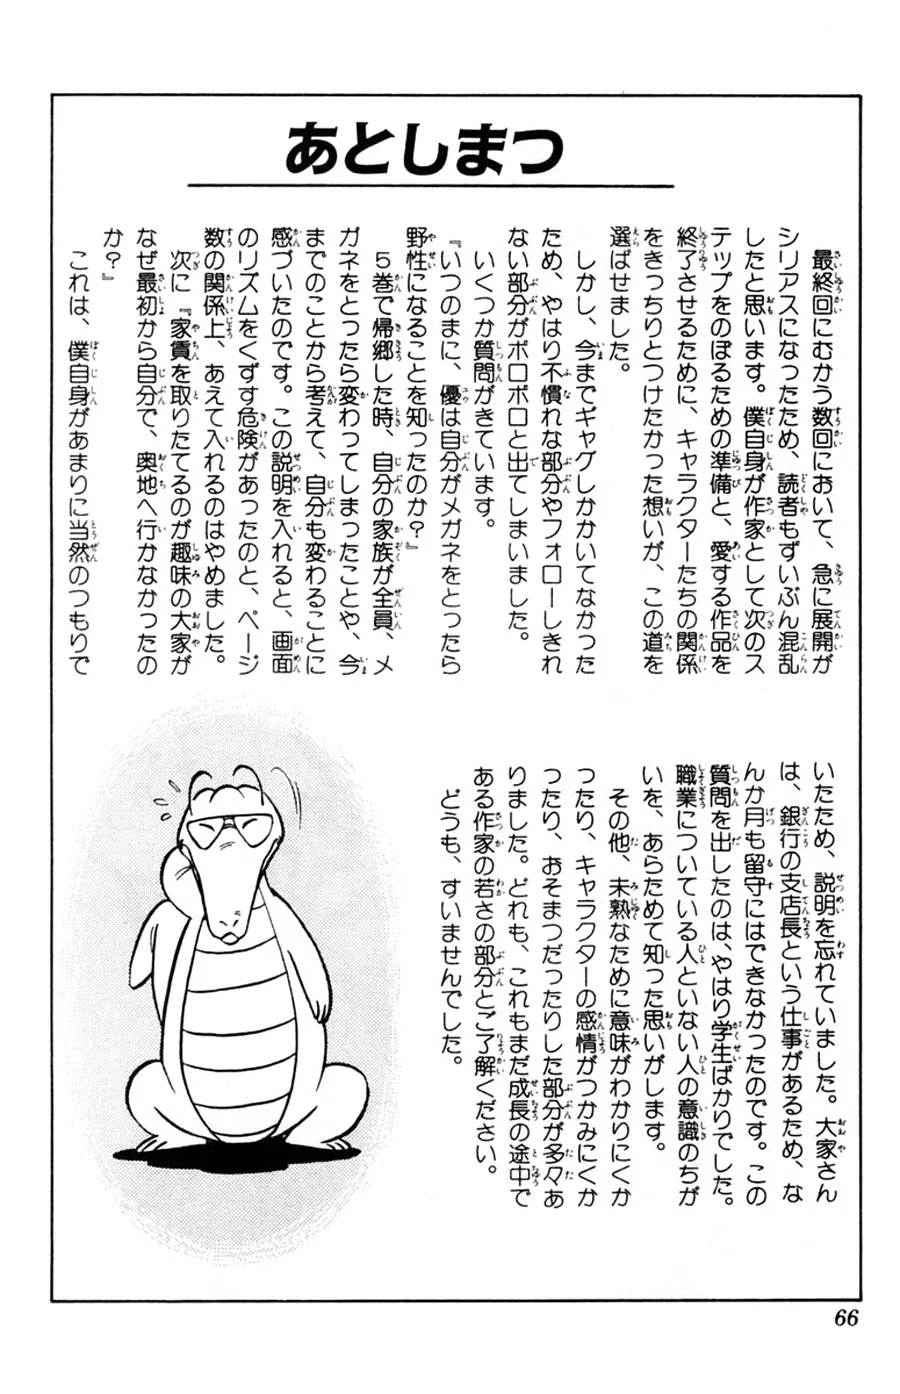 あとしまつ
最終回にむかう数回において、急に展開が
シリアスになったため、読者もずいぶん混乱
したと思います。僕自身が作家として次のス
テップをのぼるための準備と、愛する作品を
終了させるために、キャラクターたちの関係
をきっちりとつけたかった想いが、この道を
選ばせました。
しかし、今までギャグしかかいてなかった
ため、やはり不慣れな部分やフォローしきれ
ない部分がボロボロと出てしまいました。
いくつか質問がきています。
『いつのまに、優は自分がメガネをとったら
野性になることを知ったのか？』
５巻で帰郷した時、自分の家族が全員、メ
ガネをとったら変わってしまったことや、今
までのことから考えて、自分も変わることに
感づいたのです。この説明を入れると、画面
のリズムをくずす危険があったのと、ページ
数の関係上、あえて入れるのはやめました。
次に『家賃を取りたてるのが趣味の大家が
なぜ最初から自分で、奥地へ行かなかったの
か？』
これは、僕自身があまりに当然のつもりで
いたため、説明を忘れていました。大家さん
は、銀行の支店長という仕事があるため、な
んか月も留守にはできなかったのです。この
質問を出したのは、やはり学生ばかりでした。
職業についている人といない人の意識のちが
いを、あらためて知った思いがします。
その他、未熟なために意味がわかりにくか
ったり、キャラクターの感情がつかみにくか
ったり、おそまつだったりした部分が多々あ
りました。どれも、これもまだ成長の途中で
ある作家の若さの部分とご了解ください。
どうも、すいませんでした。
66